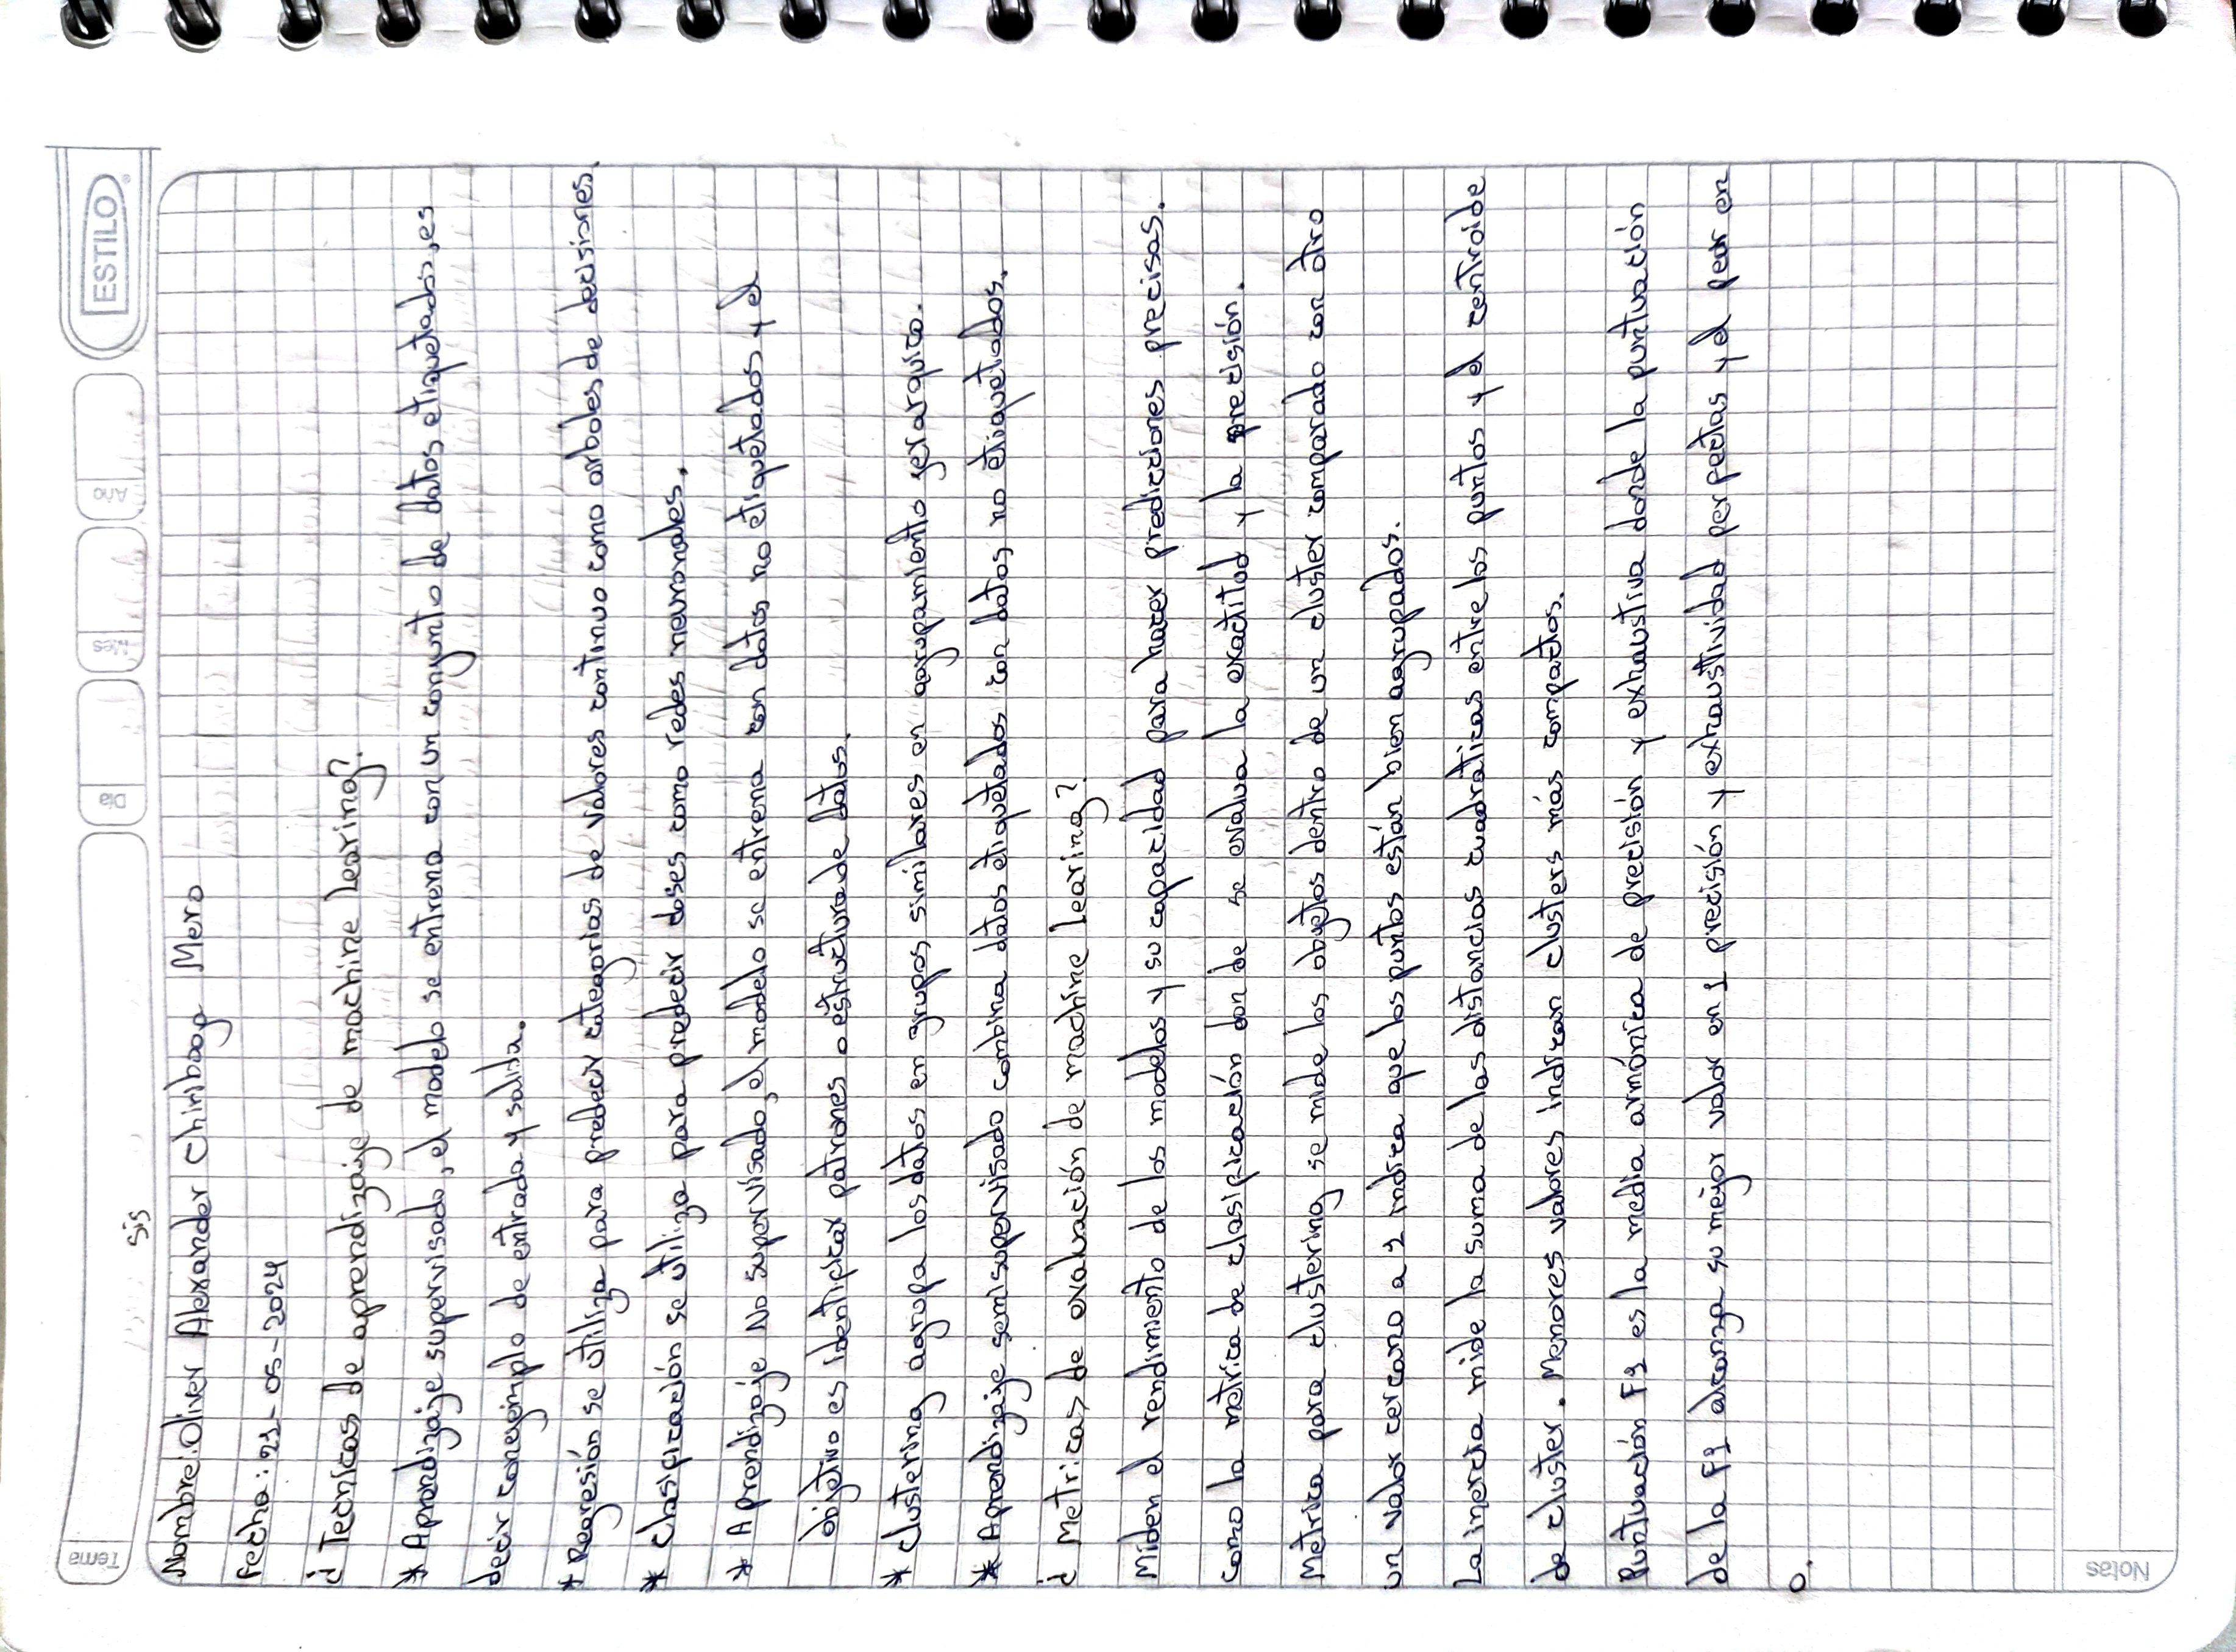 Tema
Día
Mes
Año
ESTILO
sis
Nombre: Oliver Alexander Chiriboga Mero
Fecha: 21-05-2024
¿Tecnicas de aprendizaje de machine learing?
* Aprendizaje supervisado, el modelo se entrena con un conjunto de datos etiquetados, es
decir con ejemplo de entrada y salida.
* Regresión se utiliza para predecir categorias de valores continuo como arboles de decisiones.
* Clasificación se utiliza para predecir clases como redes neuronales.
* Aprendizaje No supervisado, el modelo se entrena con datos no etiquetados y el
objetivo es identificar patrones o estructura de datos.
* Clustering agrupa los datos en grupos similares en agrupamiento jerarquico.
* Aprendizaje semisupervisado combina datos etiquetados con datos no etiquetados.
¿Metricas de evaluación de machine learing?
Miden el rendimiento de los modelos y su capacidad para hacer predicciones precisas.
como la metrica de clasificación don de se evalua la exactitud y la precisión.
Metrica para clustering se mide los objetos dentro de un cluster comparado con otro
un valor cercano a 1 indica que los puntos están bien agrupados.
La inercia mide la suma de las distancias cuadraticas entre los puntos y el centroide
de cluster. Menores valores indican clusters más compactos.
Puntuación F1 es la media armónica de precisión y exhaustiva donde la puntuación
de la F1 alcanza su mejor valor en 1 precisión y exhaustividad perfectas y el peor en
0.
Notas